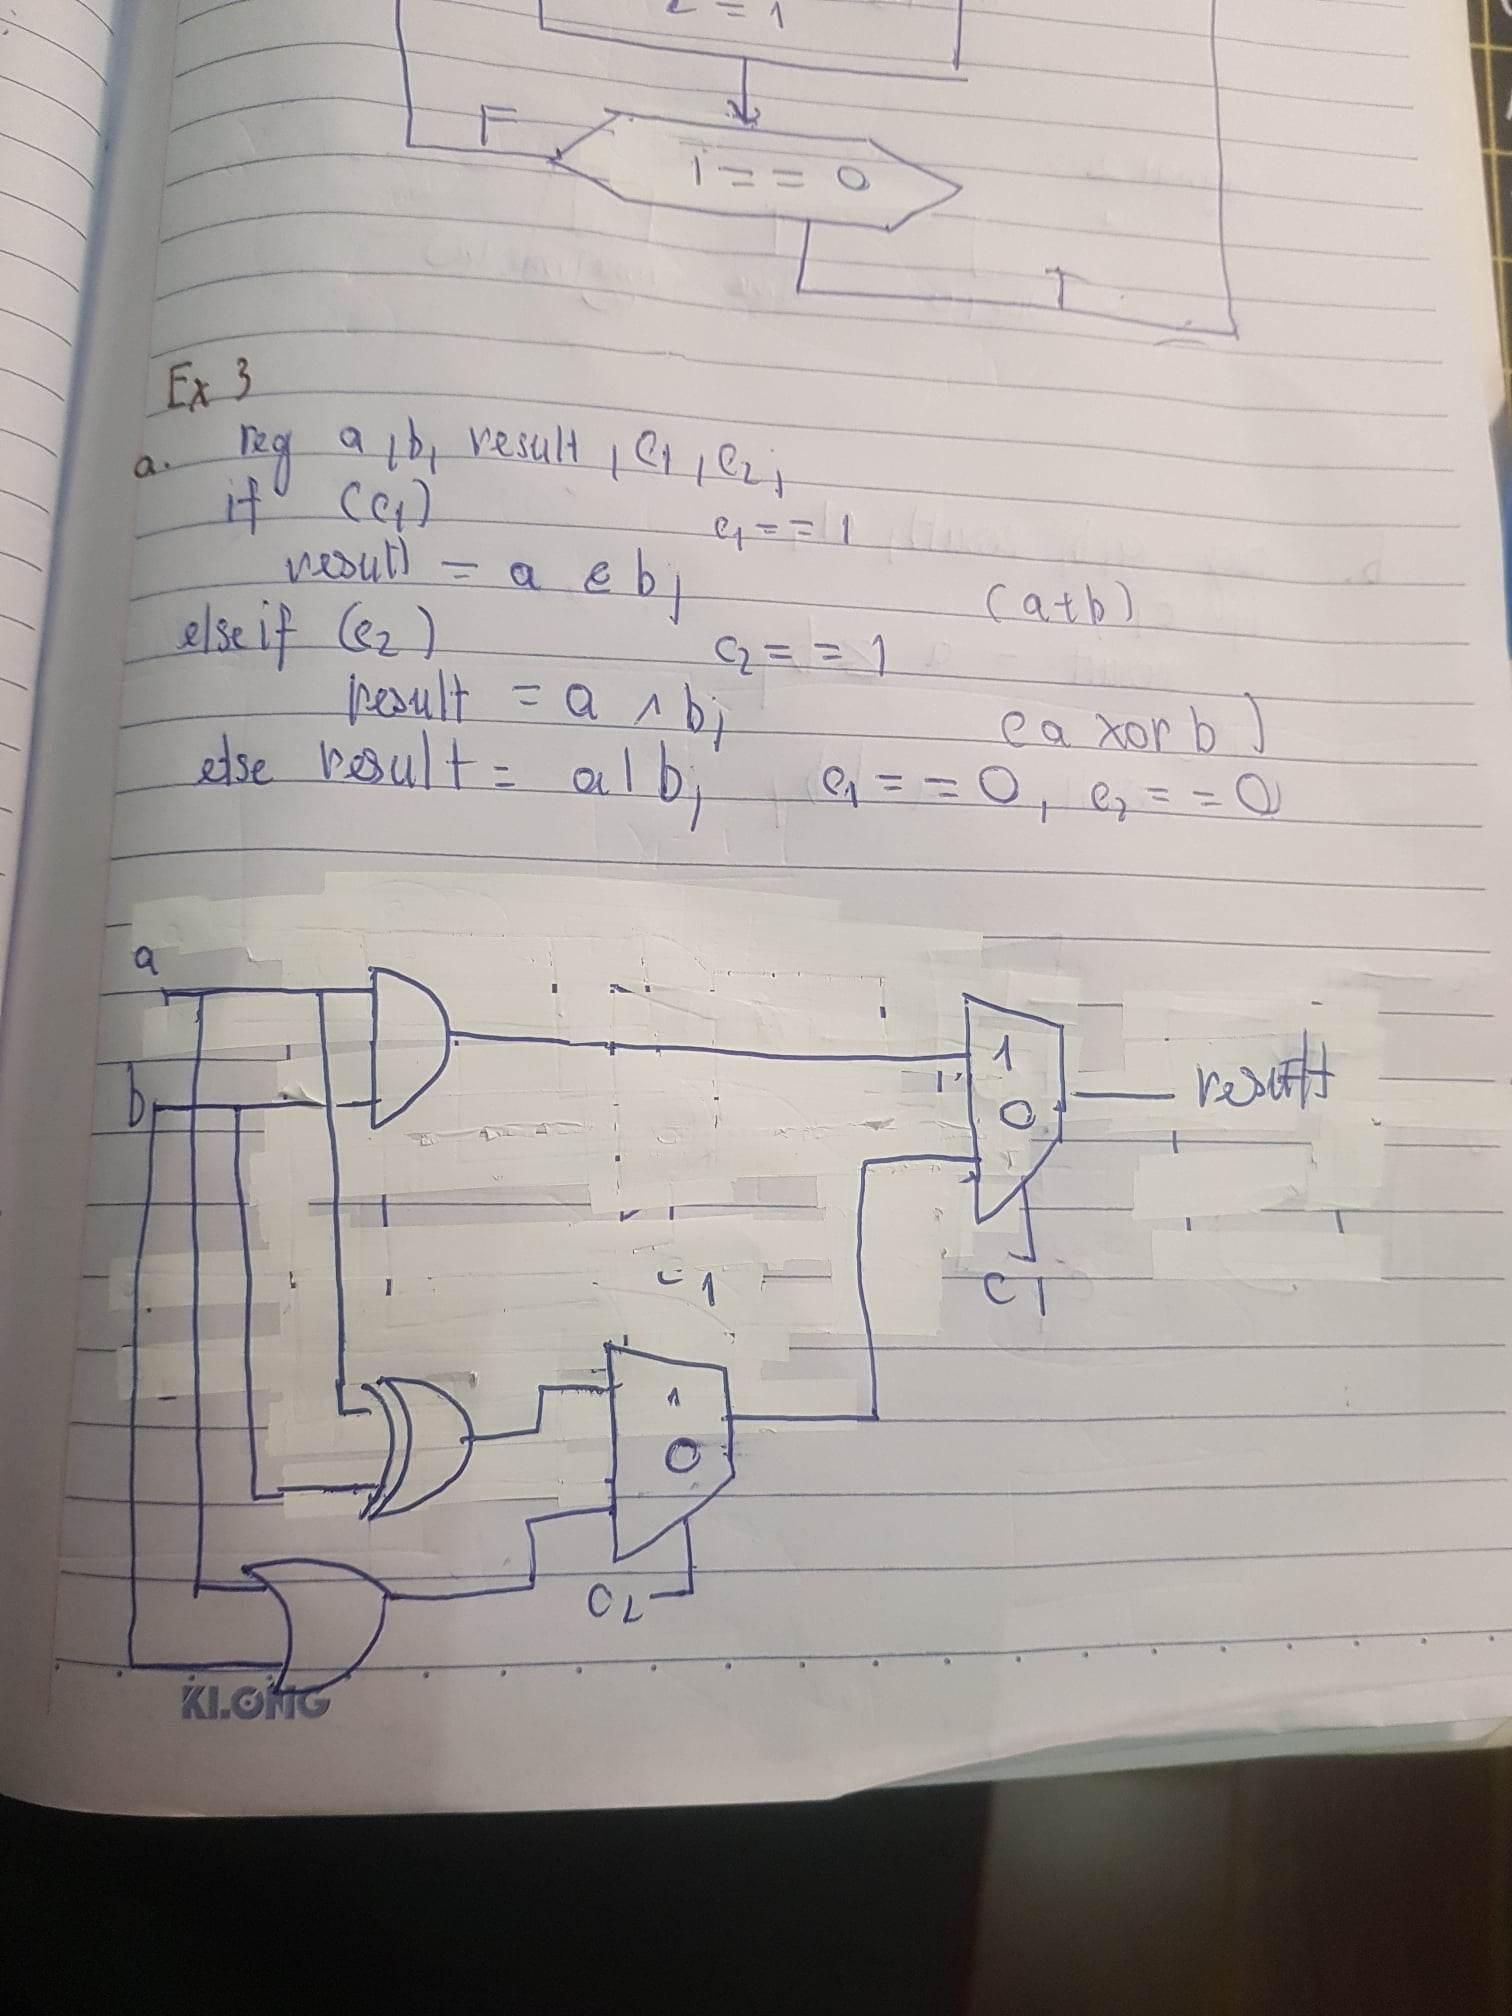 = 1
F
i == 0
T
Ex 3
a. reg a, b, result, c1, c2;
if (c1) c1 == 1
result = a e b; (a+b)
else if (c2) c2 == 1
result = a ^ b; (a xor b)
else result = a | b; c1 == 0, c2 == 0
a
b
1
0
result
c1
1
1
0
c2
KLONG